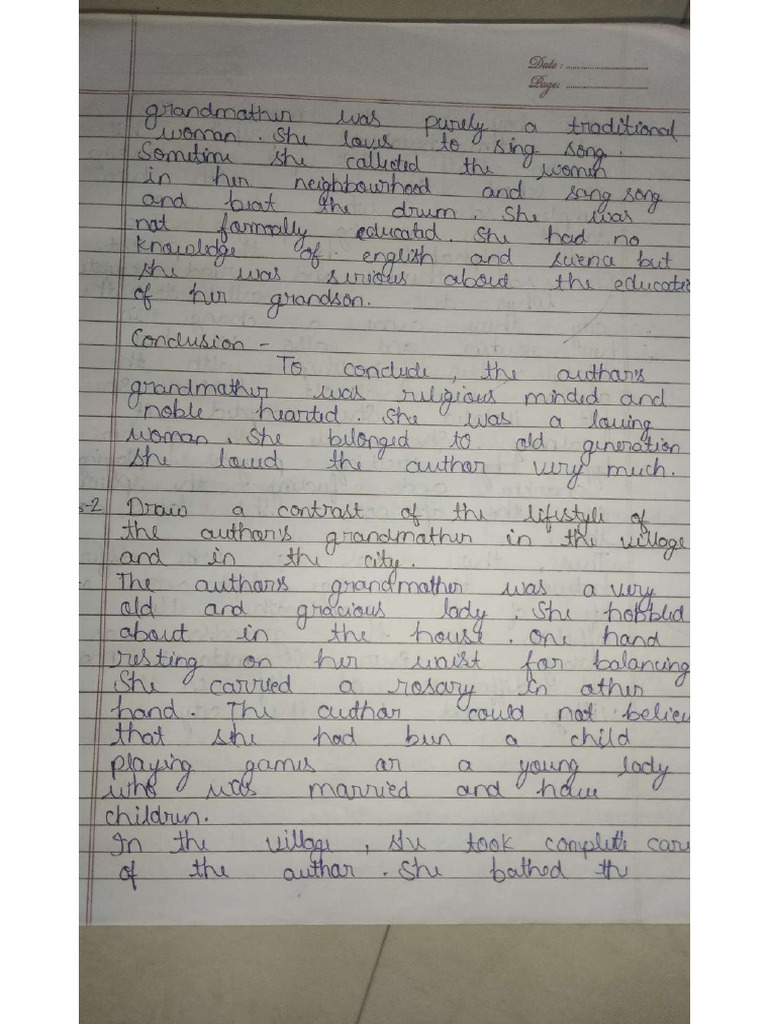 Date :
Page:
grandmother was purely a traditional
woman. She loves to sing song.
Sometime she collected the women
in her neighbourhood and sang song
and beat the drum. She was
not formally educated. She had no
knowledge of english and science but
she was serious about the educati
of her grandson.
Conclusion -
To conclude, the author's
grandmother was religious minded and
noble hearted. She was a loving
woman. She belonged to old generation
she loved the author very much.
s-2 Draw a contrast of the lifestyle of
the author's grandmother in the village
and in the city.
The author's grandmother was a very
old and gracious lady. She hobbled
about in the house. One hand
resting on her waist for balancing
She carried a rosary in other
hand. The author could not believ
that she had been a child
playing games or a young lady
who was married and have
children.
In the village, she took complete care
of the author. She bathed th